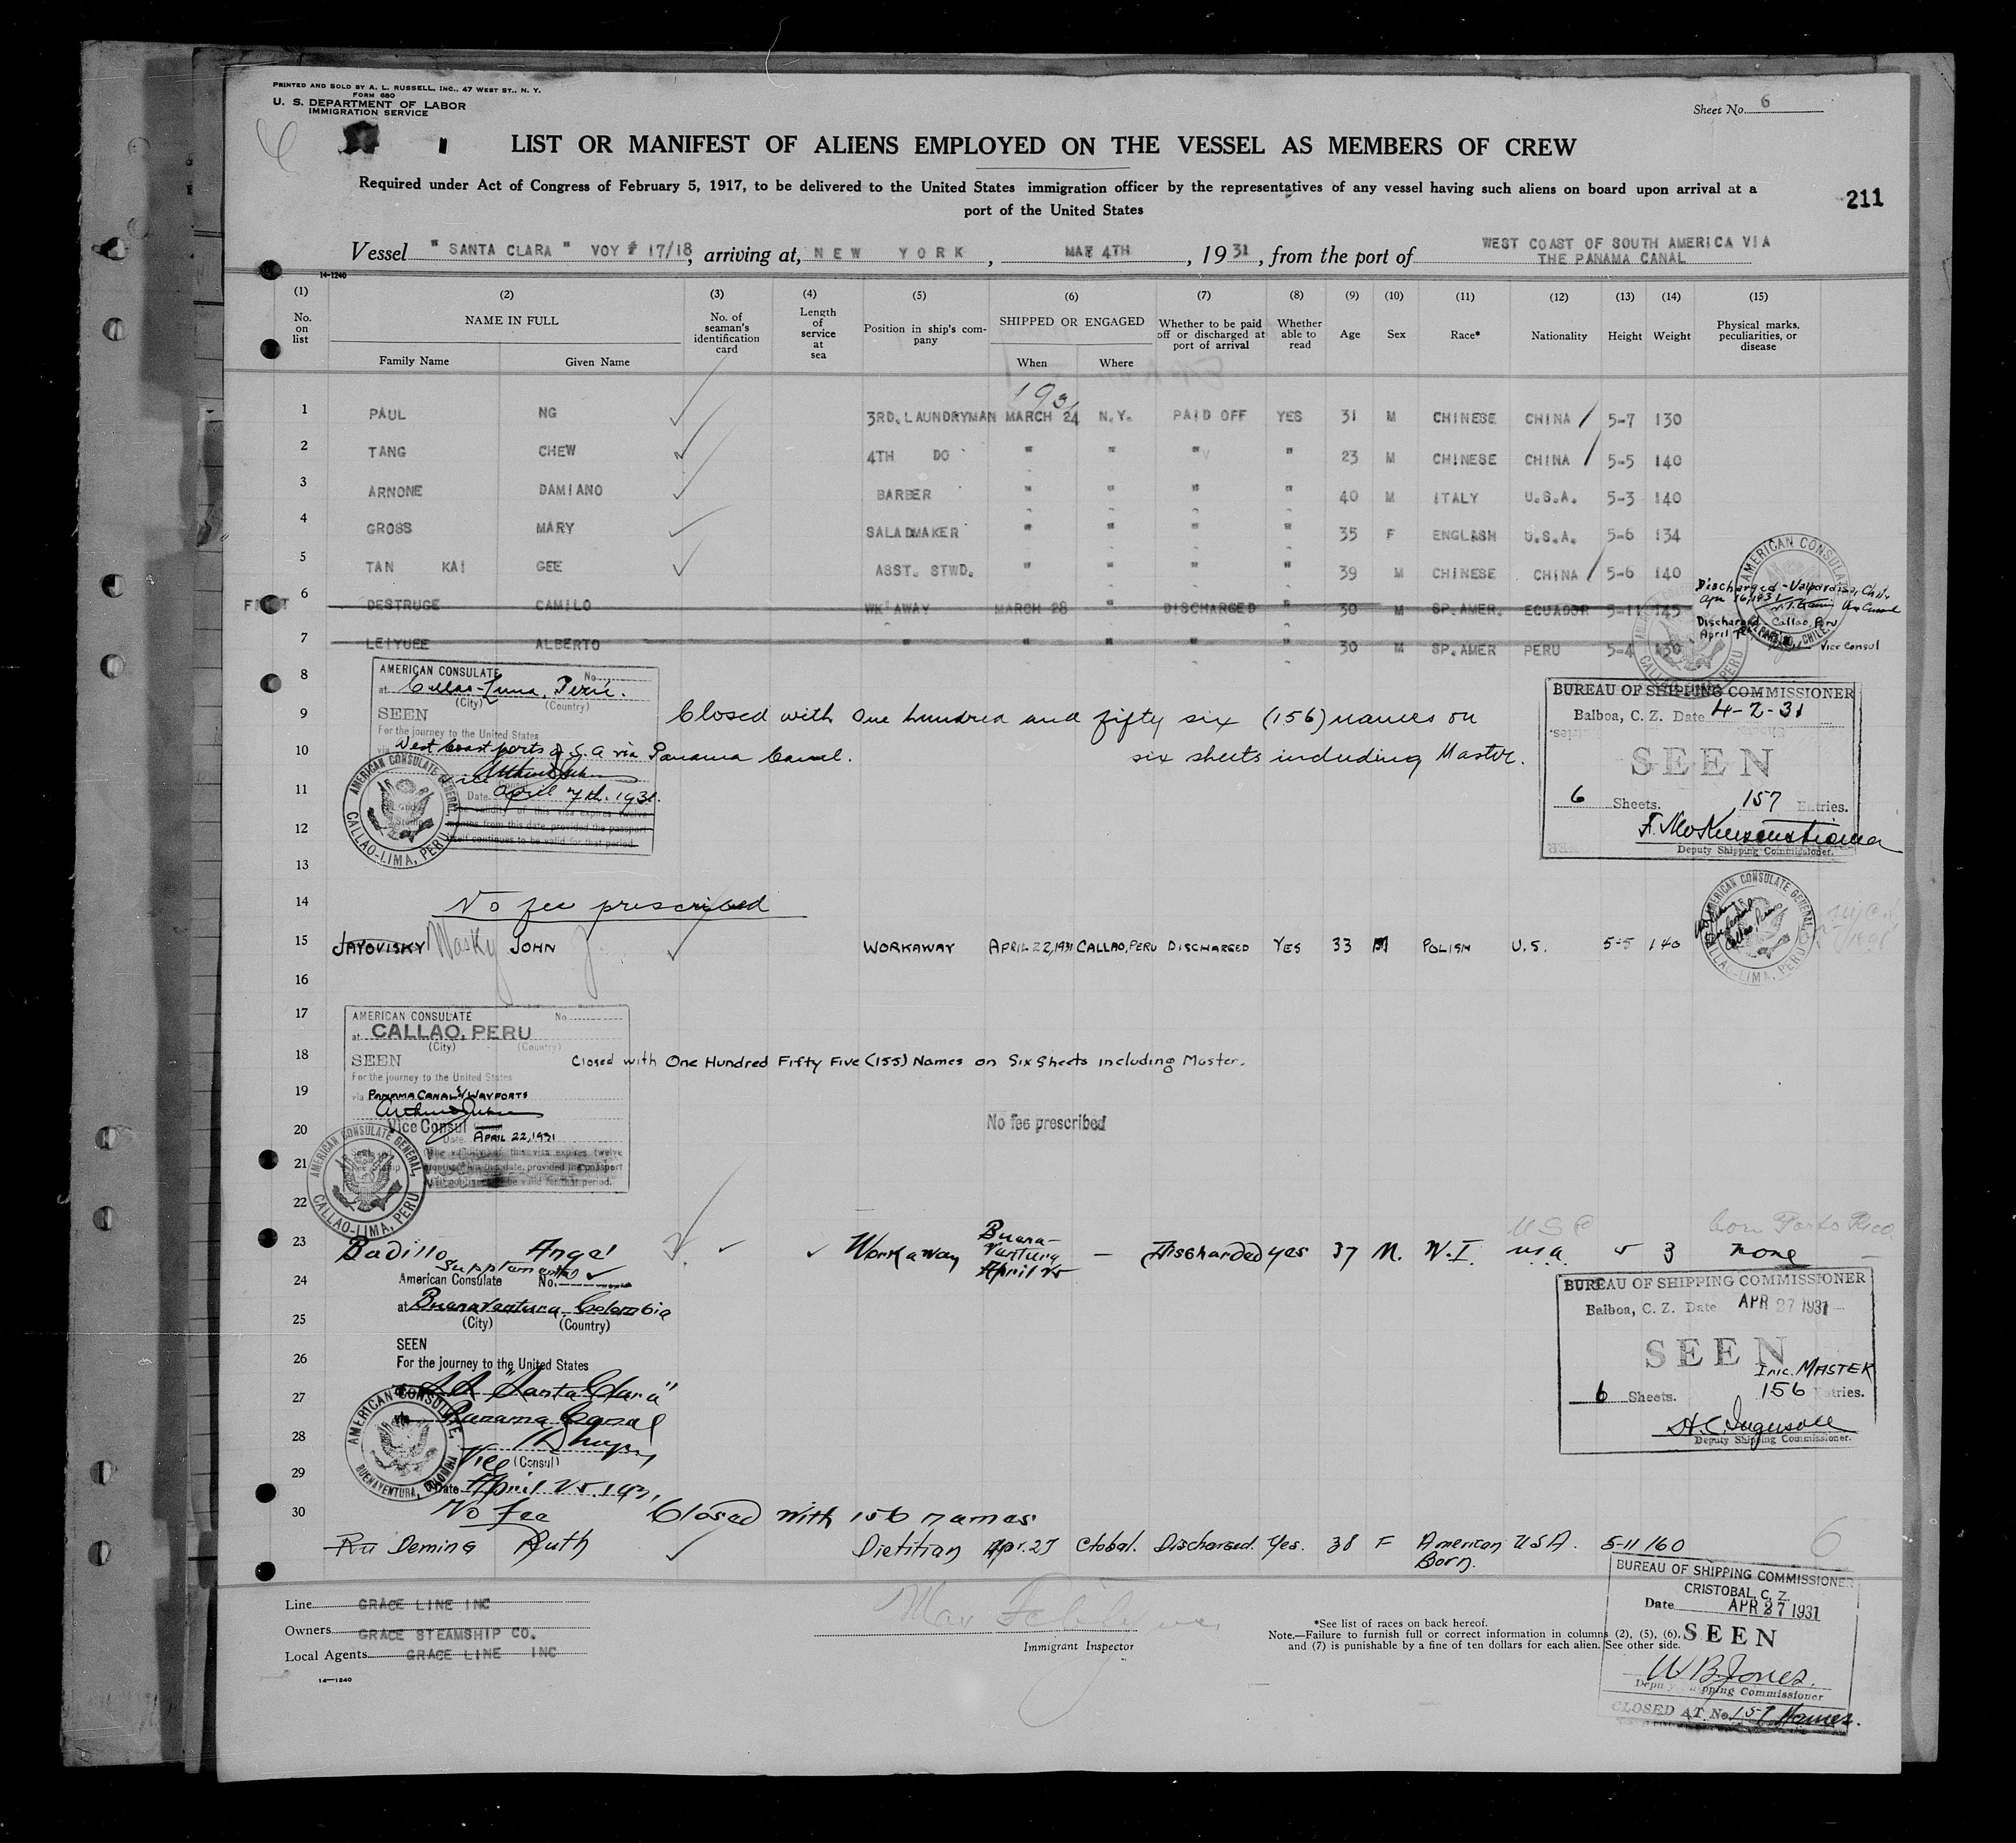 PRINTED AND SOLD BY A. L. RUSSELL, INC., 47 WEST ST., N. Y.
FORM 680
U. S. DEPARTMENT OF LABOR
IMMIGRATION SERVICE
Sheet No. 6
LIST OR MANIFEST OF ALIENS EMPLOYED ON THE VESSEL AS MEMBERS OF CREW
Required under Act of Congress of February 5, 1917, to be delivered to the United States immigration officer by the representatives of any vessel having such aliens on board upon arrival at a
port of the United States
211
Vessel "SANTA CLARA" VOY # 17/18, arriving at, NEW YORK, MAY 4TH, 1931, from the port of WEST COAST OF SOUTH AMERICA VIA
THE PANAMA CANAL
14-1240
(1) (2) (3) (4) (5) (6) (7) (8) (9) (10) (11) (12) (13) (14) (15)
No. on list
NAME IN FULL
Family Name Given Name
No. of seaman's identification card
Length of service at sea
Position in ship's company
SHIPPED OR ENGAGED
When Where
Whether to be paid off or discharged at port of arrival
Whether able to read
Age Sex Race* Nationality Height Weight
Physical marks, peculiarities, or disease
1931
1 PAUL NG 3RD. LAUNDRYMAN MARCH 24 N.Y. PAID OFF YES 31 M CHINESE CHINA 5-7 130
2 TANG CHEW 4TH DO " " " " 23 M CHINESE CHINA 5-5 140
3 ARNONE DAMIANO BARBER " " " " 40 M ITALY U.S.A. 5-3 140
4 GROSS MARY SALADMAKER " " " " 35 F ENGLISH U.S.A. 5-6 134
5 TAN KAI GEE ASST. STWD. " " " " 39 M CHINESE CHINA 5-6 140
6 DESTRUGE CAMILO WK'AWAY MARCH 28 " DISCHARGED " 30 M SP.AMER. ECUADOR 5-11 145
Discharged - Valparaiso, Chile
Apr 16, 1931
Vice Consul
7 LEIYUEE ALBERTO " " " " " 30 M SP.AMER PERU 5-4 130
Discharged Callao, Peru
April
Vice Consul
8
9
10
11
12
13
14
AMERICAN CONSULATE No.
at Callao-Lima, Perú.
(City) (Country)
SEEN
For the journey to the United States
via West Coast ports of S. A via Panama Canal.
Date April 7th. 1931.
The validity of this visa expires twelve
months from this date, provided the passport
itself continues to be valid for that period.
AMERICAN CONSULATE GENERAL, CALLAO-LIMA, PERU
Closed with One hundred and fifty six (156) names on
six sheets including Master.
BUREAU OF SHIPPING COMMISSIONER
Balboa, C. Z. Date 4-2-31
SEEN
6 Sheets. 157 Entries.
Deputy Shipping Commissioner.
No fee prescribed
15 JAYOVISKY Masky JOHN J. WORKAWAY APRIL 22, 1931 CALLAO, PERU DISCHARGED YES 33 M POLISH U.S. 5-5 140
AMERICAN CONSULATE GENERAL, CALLAO-LIMA, PERU
16
17
18
19
20
21
22
AMERICAN CONSULATE No.
at CALLAO, PERU
(City) (Country)
SEEN
For the journey to the United States
via PANAMA CANAL & WAYPORTS
Vice Consul
Date APRIL 22, 1931
The validity of this visa expires twelve
months from this date, provided the passport
itself continues to be valid for that period.
AMERICAN CONSULATE GENERAL, CALLAO-LIMA, PERU
Closed with One Hundred Fifty Five (155) Names on Six Sheets including Master.
No fee prescribed
23 Badillo Angel Workaway Buenaventura April 25 — Discharded yes 37 M. W.I. U.S.A. 5 3 none
U S C
born Porto Rico
24
25
26
27
28
29
30
Supplemental
American Consulate No.
at Buenaventura, Colombia
(City) (Country)
SEEN
For the journey to the United States
SS "Santa Clara"
via Panama Canal
Vice (Consul)
Date April 25. 1931
AMERICAN CONSULATE, BUENAVENTURA, COLOMBIA
No fee Closed with 156 names
BUREAU OF SHIPPING COMMISSIONER
Balboa, C. Z. Date APR 27 1931
SEEN
Inc. MASTER
6 Sheets. 156 Entries.
H.C. Ingersoll
Deputy Shipping Commissioner.
Ru Deming Ruth Dietitian Apr. 27 Ctobal. Discharged. Yes. 38 F American Born. USA. 5-11 160
6
BUREAU OF SHIPPING COMMISSIONER
CRISTOBAL, C. Z.
Date APR 27 1931
SEEN
W B Jones.
Deputy Shipping Commissioner
CLOSED AT No. 157 Names.
Line GRACE LINE INC
Owners GRACE STEAMSHIP CO.
Local Agents GRACE LINE INC
14—1240
Immigrant Inspector
*See list of races on back hereof.
Note.—Failure to furnish full or correct information in columns (2), (5), (6),
and (7) is punishable by a fine of ten dollars for each alien. See other side.